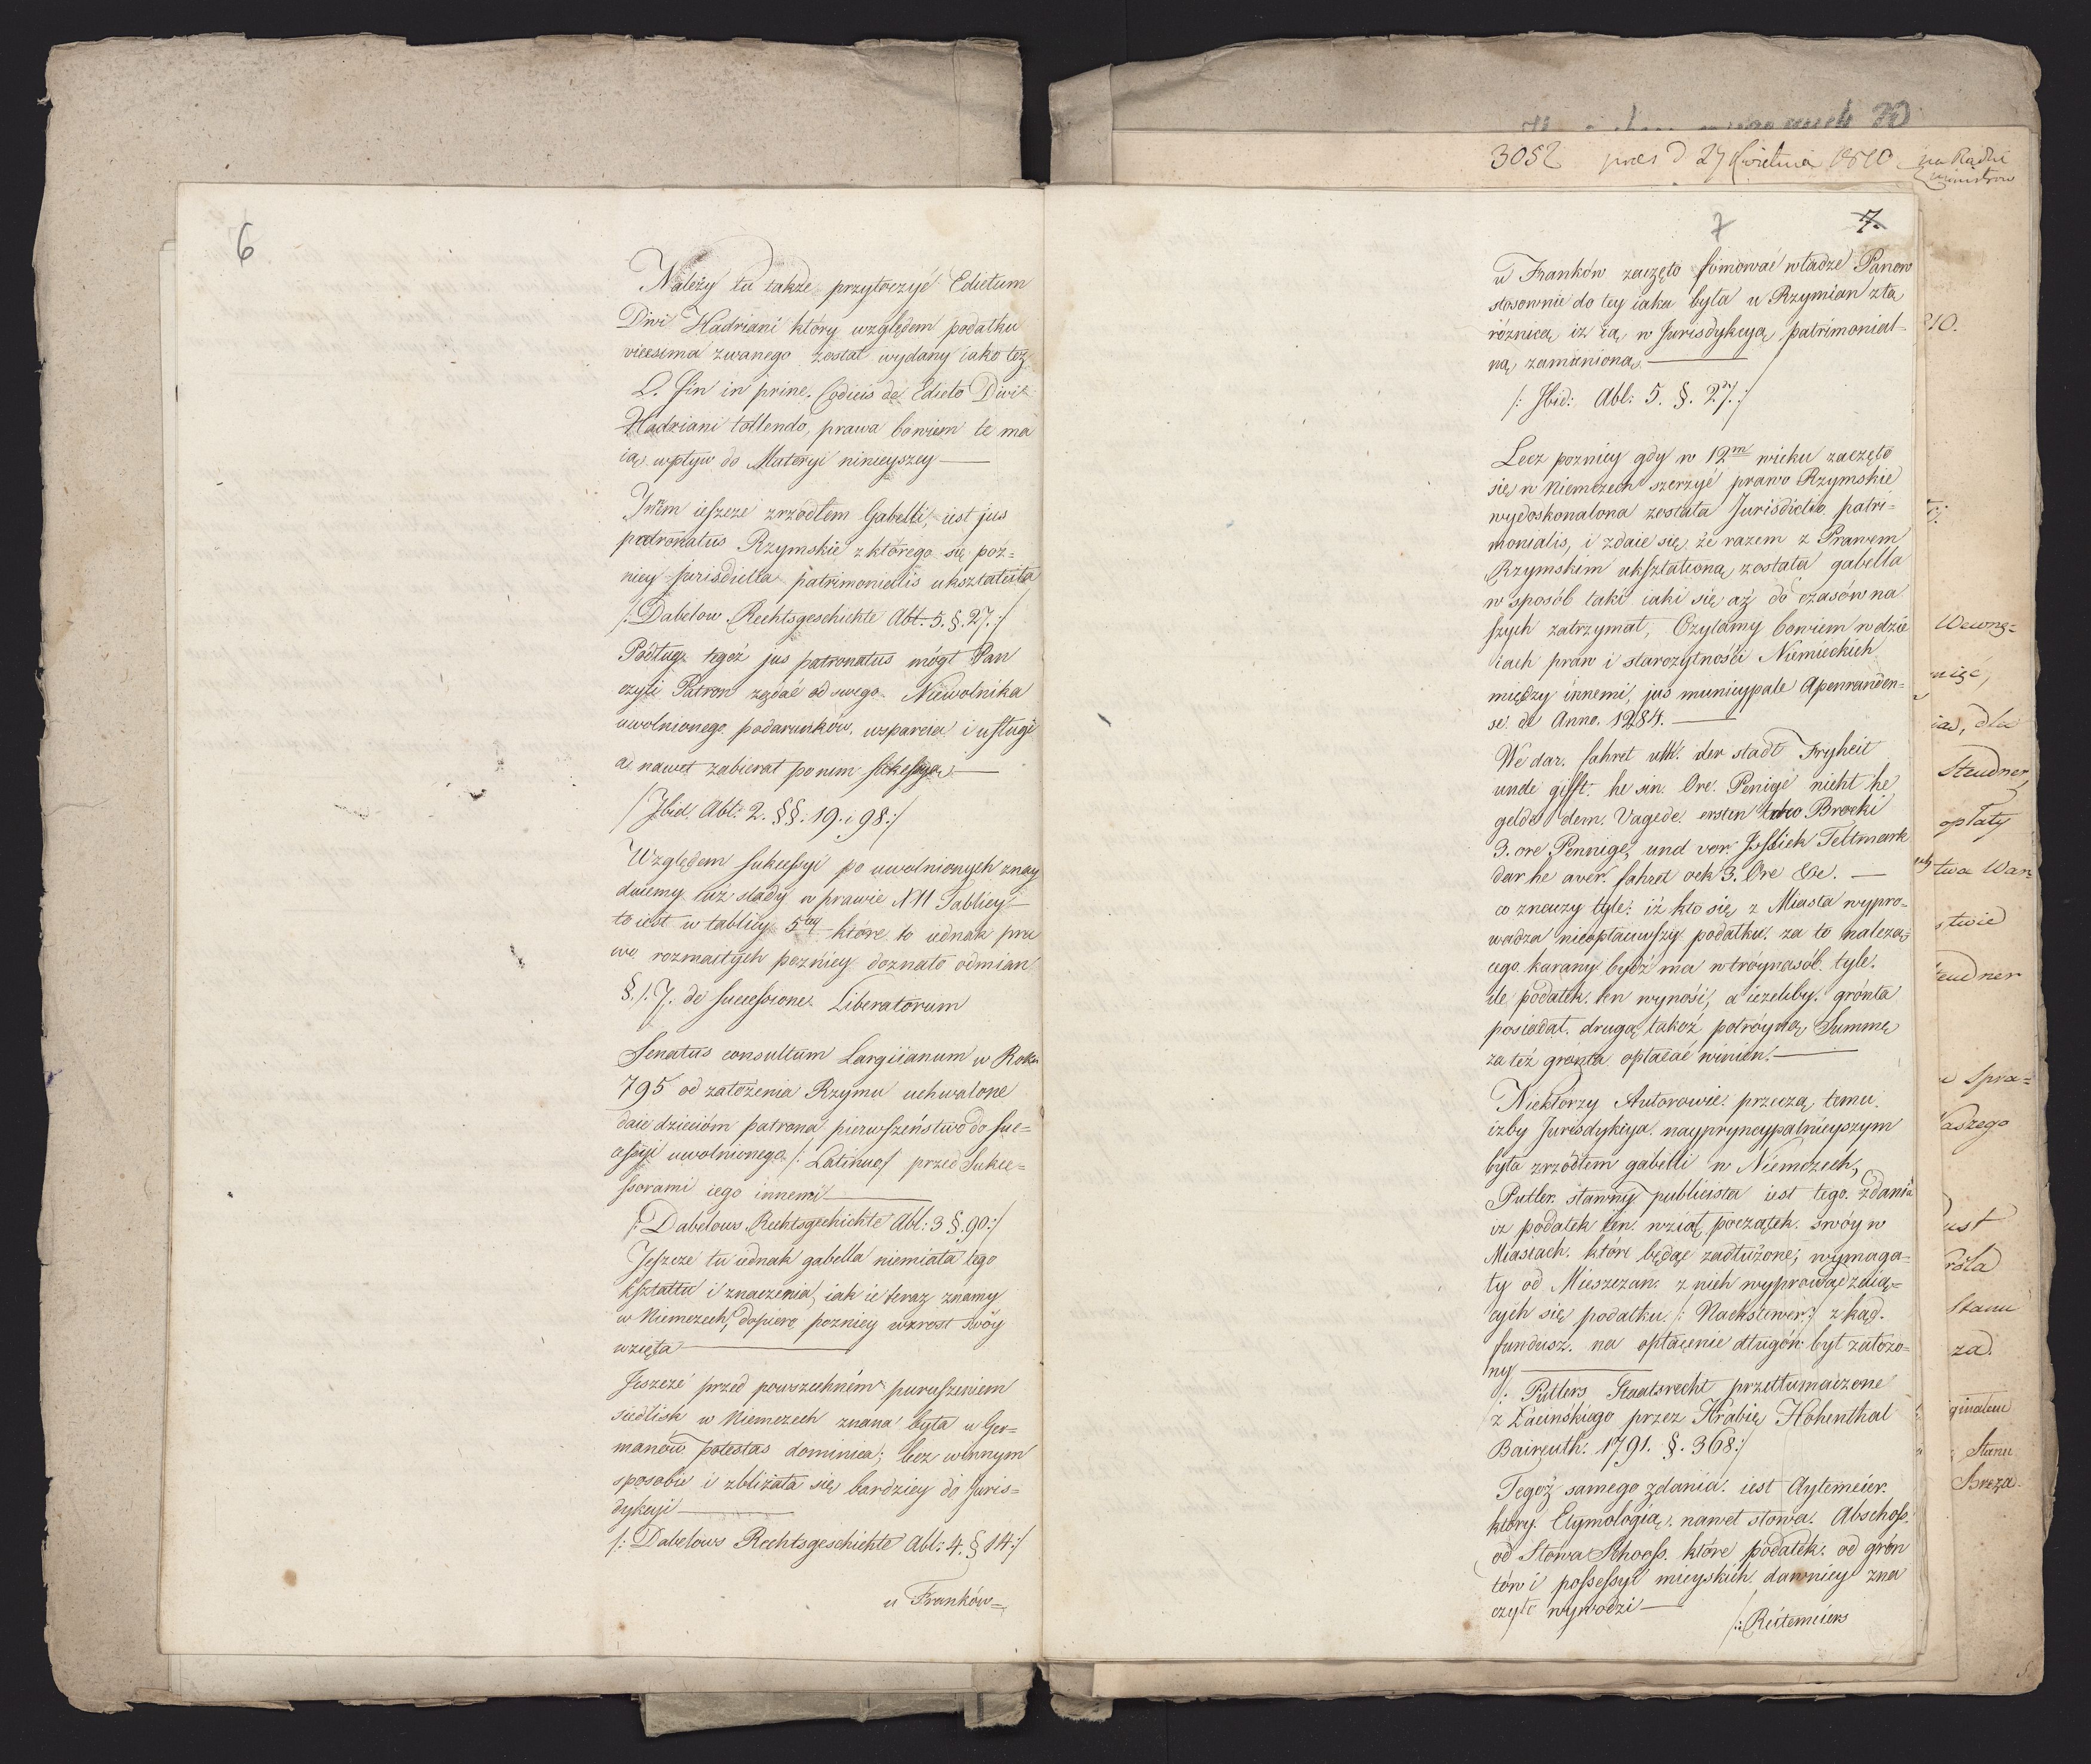 6
Należy tu także przytoczyć Edictum
Divi Hadriani który względem podatku
vicesima zwanego został wydany iako też
L. fin in princ. Codicis de Edicto Divi
Hadriani tollendo, prawa bowiem te ma
ią wpływ do Materyi ninieyszey —
Inem ieszcze zrzodłem Gabelli, iest jus
patronatus Rzymskie z którego się poz=
niey jurisdictia patrimonialis ukształciła
/: Dabelow Rechtsgeschichte Abt. 5. §. 27. :/
Podług tegoż jus patronatus mógł Pan
czyli Patron żądać od swego Niewolnika
uwolnionego podarunków, wsparcia i usługi
a nawet zabierał po nim sukcessyą —
/ Ibid. Abt: 2. §§. 19. i 98 :/
Względem sukcessyi po uwolnionych znay
duiemy iuż slady w prawie XII Tablicy
to iest w tablicy 5tey które to iednak pra
wo rozmaitych pozniey doznało odmian
§. 1. J. de successione Liberatorum
Senatus consultum Largiianum w Roku
795 od założenia Rzymu uchwalone
daie dzieciom patrona pierwszeństwo do suc=
cessyi uwolnionego /: Latinus/ przed Sukce=
ssorami iego innemi —
/: Dabelows Rechtsgechichte Abt: 3 §. 90 :/
Jeszcze tu iednak gabella niemiała tego
kształtu i znaczenia, iak ie teraz znamy
w Niemczech, dopiero pozniey wzrost swóy
wzięła —
Jeszcze przed powszechnem poruszeniem
siedlisk w Niemczech znana była u Ger=
manow potestas dominica; lecz w innym
sposobie i zbliżała się bardziey do Juris=
dykcyi —
/: Dabelows Rechtsgeschichte Abt: 4. § 14 :/
u Franków=
3052 pres d 27 Kwietnia 1810 na Radzie
Ministrow
7 7.
u Franków zaczęto fomować władze Panow
stosownie do tey iaka była u Rzymian z tą
różnicą iż ią w Jurisdykcyą patrimonial=
ną zamieniono —
/: Ibid: Abt: 5. §. 27. :/
Lecz pozniey gdy w 12m wieku zaczęto
się w Niemczech szerzyć prawo Rzymskie
wydoskonalona została Jurisdictio patri=
monialis, i zdaie się że razem z Prawem
Rzymskim ukształconą została gabella
w sposób taki iaki się aż do czasów na
szych zatrzymał, Czytamy bowiem w dzie
iach praw i starożytności Niemieckich
między innemi, jus municypale Apenranden=
se de Anno. 1284. —
We dar. fahret utk. der stadt Fryheit
unde gifft. he sin. Ore. Penige nicht he
gelde dem. Vagede. ersten Brocki
3. ore Pennige, und vor Teltmark
dar he aver. fahret ock 3. Ore &c. —
co znaczy tyle: iż kto się z Miasta wypro=
wadza nieopłaciwszy podatku. za to należą=
cego karany bydź ma w tróynasób. tyle.
ile podatek. ten wynosi, a ieżeliby. grónta
posiadał. drugą takoż potróyną Summę
za też grónta opłacać winien. —
Niektorzy Autorowie. przeczą temu.
iżby Jurisdykcya. nayprynicypalnieyszym
była zrzódłem gabelli w Niemczech,
Putter. sławny publicista iest tego. zdania
iż podatek ten. wziął początek. swóy w
Miastach. które będąc zadłużone; wymaga=
ły od Mieszczan. z nich wyprowadzaią=
cych się podatku. /: Nachsteuer :/ z kąd.
fundusz. na opłacenie długów był założo=
ny —
/: Putters Staatsrecht przetłumaczone
z Łacińskiego przez Hrabię Hohenthal
Baireuth. 1791. §. 368 :/
Tegoż samego zdania. iest Aytemeier.
który. Etymologią. nawet słowa. Abschoss.
od Słowa Schooss. które podatek. od grón
tów i possessyi mieyskich. dawniey zna
czyło wywodzi —
/: Reitemeiers
10.
Wewnę=
nięć,
ias, dla
Steudner,
opłaty
twa War=
stwie
teudner
Spra=
Naszego
ust
róla
Stanu
za
ginałem
Stanu
Breza